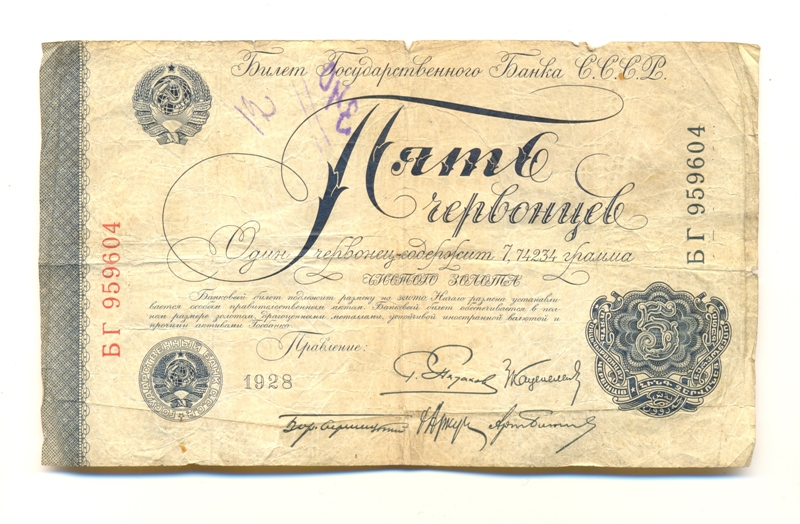 Билет Государственного Банка С.С.С.Р.
Пять
червонцев
Один червонец содержит 7,74234 грамма
чистого золота
Банковый билет подлежит размену на золото. Начало размена устанавли-
вается особым правительственным актом. Банковый билет обеспечивается в пол-
ном размере золотом, драгоценными металлами, устойчивой иностранной валютой и
прочими активами Госбанка.
Правление:
1928
БГ 959604
БГ 959604
5